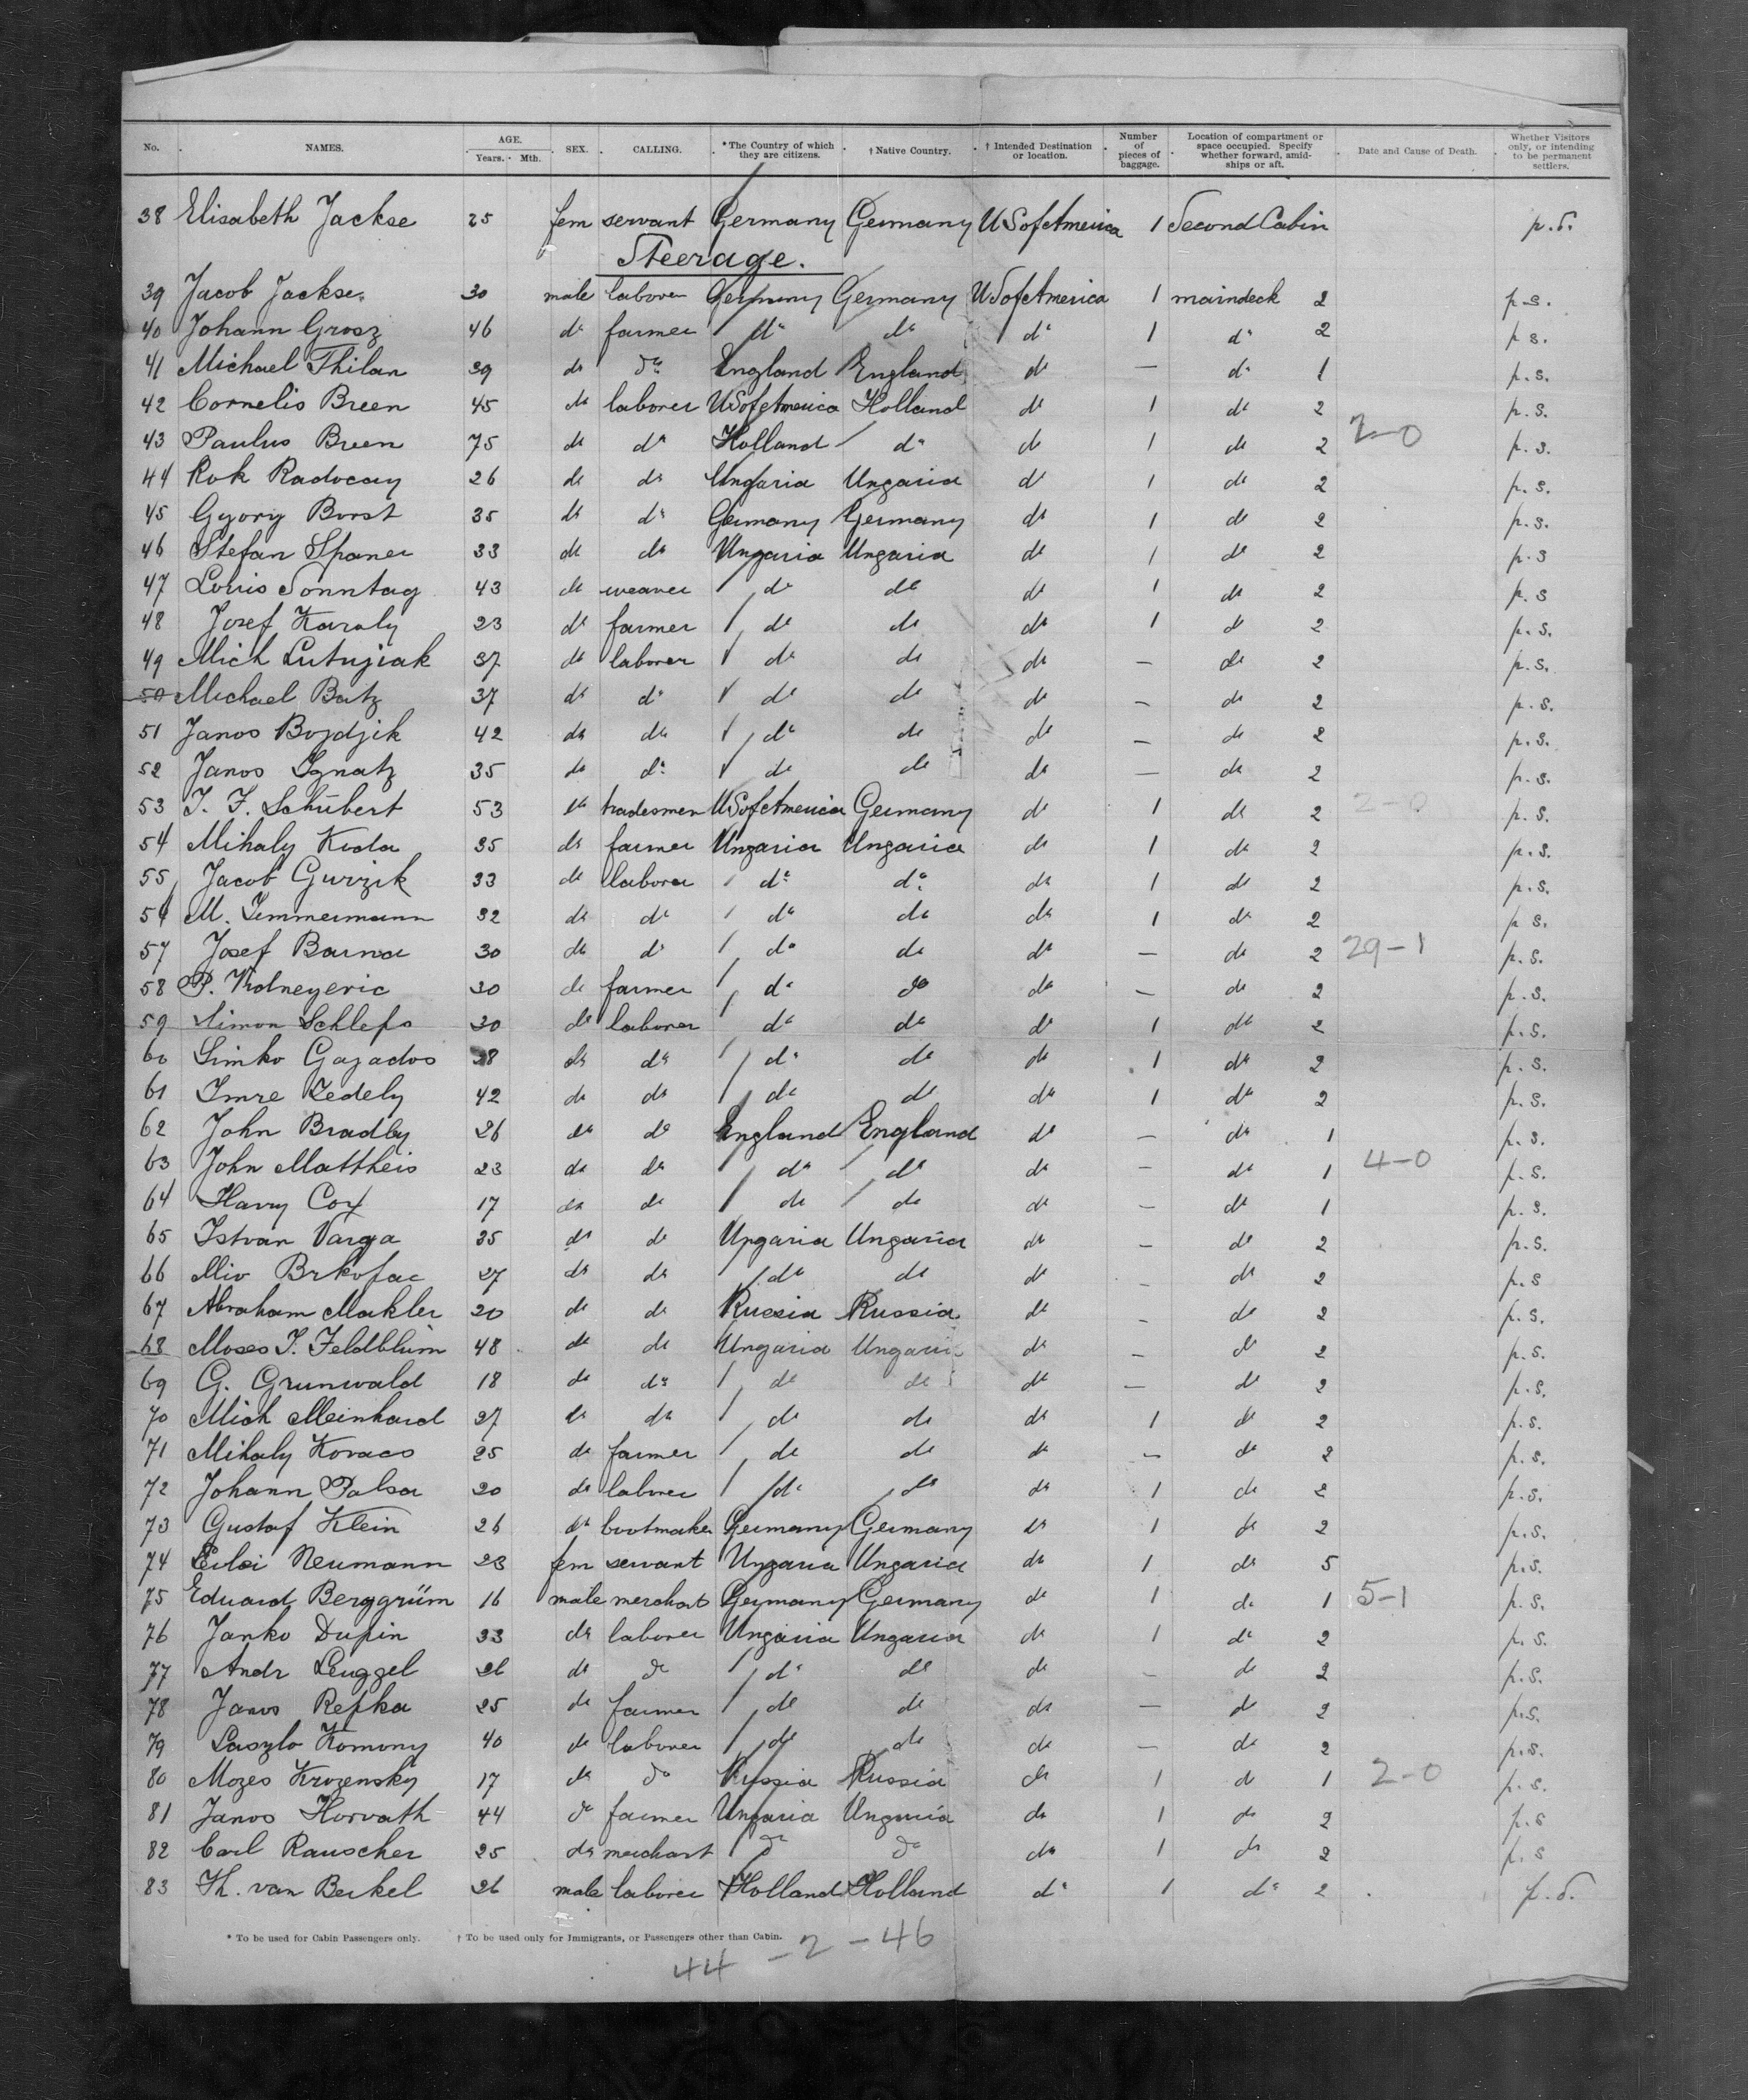 No. NAMES. AGE. Years. Mth. SEX. CALLING. *The Country of which they are citizens. †Native Country. †Intended Destination or location. Number of pieces of baggage. Location of compartment or space occupied. Specify whether forward, amid-ships or aft. Date and Cause of Death. Whether Visitors only, or intending to be permanent settlers.
38 Elisabeth Jackse 25 fem servant Germany Germany US of America 1 Second Cabin p.s.
Steerage.
39 Jacob Jackse 30 male laborer Germany Germany US of America 1 maindeck 2 p.s.
40 Johann Grosz 46 do farmer do do do 1 do 2 p s.
41 Michael Thilan 39 do do England England do — do 1 p.s.
42 Cornelis Breen 45 do laborer US of America Holland do 1 do 2 p.s.
43 Paulus Breen 75 do do Holland do do 1 do 2 2-0 p.s.
44 Rok Radocay 26 do do Ungaria Ungaria do 1 do 2 p.s.
45 Gyory Borst 35 do do Germany Germany do 1 do 2 p.s.
46 Stefan Spaner 33 do do Ungaria Ungaria do 1 do 2 p.s
47 Louis Sonntag 43 do weaver do do do 1 do 2 p.s
48 Josef Karaly 23 do farmer do do do 1 do 2 p.s.
49 Mich Lutujiak 37 do laborer do do do — do 2 p.s.
50 Michael Batz 37 do do do do do — do 2 p.s.
51 Janos Bojdjik 42 do do do do do — do 2 p.s.
52 Janos Ignatz 35 do do do do do — do 2 p.s.
53 J. F. Schubert 53 do tradesmen US of America Germany do 1 do 2 2-0 p.s.
54 Mihaly Kida 35 do farmer Ungaria Ungaria do 1 do 2 p.s.
55 Jacob Gurzik 33 do laborer do do do 1 do 2 p.s.
56 M. Temmermann 32 do do do do do 1 do 2 p s.
57 Josef Barna 30 do do do do do — do 2 29-1 p.s.
58 P. Kolneyeric 30 do farmer do do do — do 2 p.s.
59 Simon Schlefs 30 do laborer do do do 1 do 2 p.s.
60 Simko Gazados 28 do do do do do 1 do 2 p.s.
61 Imre Zedely 42 do do do do do 1 do 2 p.s.
62 John Bradby 26 do do England England do — do 1 p.s.
63 John Mattheis 23 do do do do do — do 1 4-0 p.s.
64 Harry Cox 17 do do do do do — do 1 p.s.
65 Istvan Varga 35 do do Ungaria Ungaria do — do 2 p.s.
66 Mio Brkofac 27 do do do do do — do 2 p.s
67 Abraham Makler 20 do do Russia Russia do — do 2 p.s.
68 Moses J. Feldblum 48 do do Ungaria Ungaria do — do 2 p.s.
69 G. Grunwald 18 do do do do do — do 2 p.s.
70 Mich Meinhard 27 do do do do do 1 do 2 p.s.
71 Mihaly Kovacs 25 do farmer do do do — do 2 p.s.
72 Johann Palsa 20 do laborer do do do 1 do 2 p.s.
73 Gustaf Klein 26 do bootmaker Germany Germany do 1 do 2 p.s.
74 Neumann 23 fem servant Ungaria Ungaria do 1 do 5 p.s.
75 Eduard Berggrüm 16 male merchat Germany Germany do 1 do 1 5-1 p.s.
76 Janko Dupin 33 do laborer Ungaria Ungaria do 1 do 2 p.s.
77 Andr Leuggel 26 do do do do do — do 2 p.s.
78 Janos Repka 25 do farmer do do do — do 2 p.s.
79 Laszlo Komony 40 do laborer do do do — do 2 p.s.
80 Mozes Krozensky 17 do do Russia Russia do 1 do 1 2-0 p.s.
81 Janos Horvath 44 do farmer Ungaria Ungaria do 1 do 2 p.s
82 Carl Rauscher 25 do merchart do do do 1 do 2 p.s
83 Th. van Berkel 26 male laborer Holland Holland do 1 do 2 p.s.
* To be used for Cabin Passengers only. † To be used only for Immigrants, or Passengers other than Cabin.
44 - 2 - 46